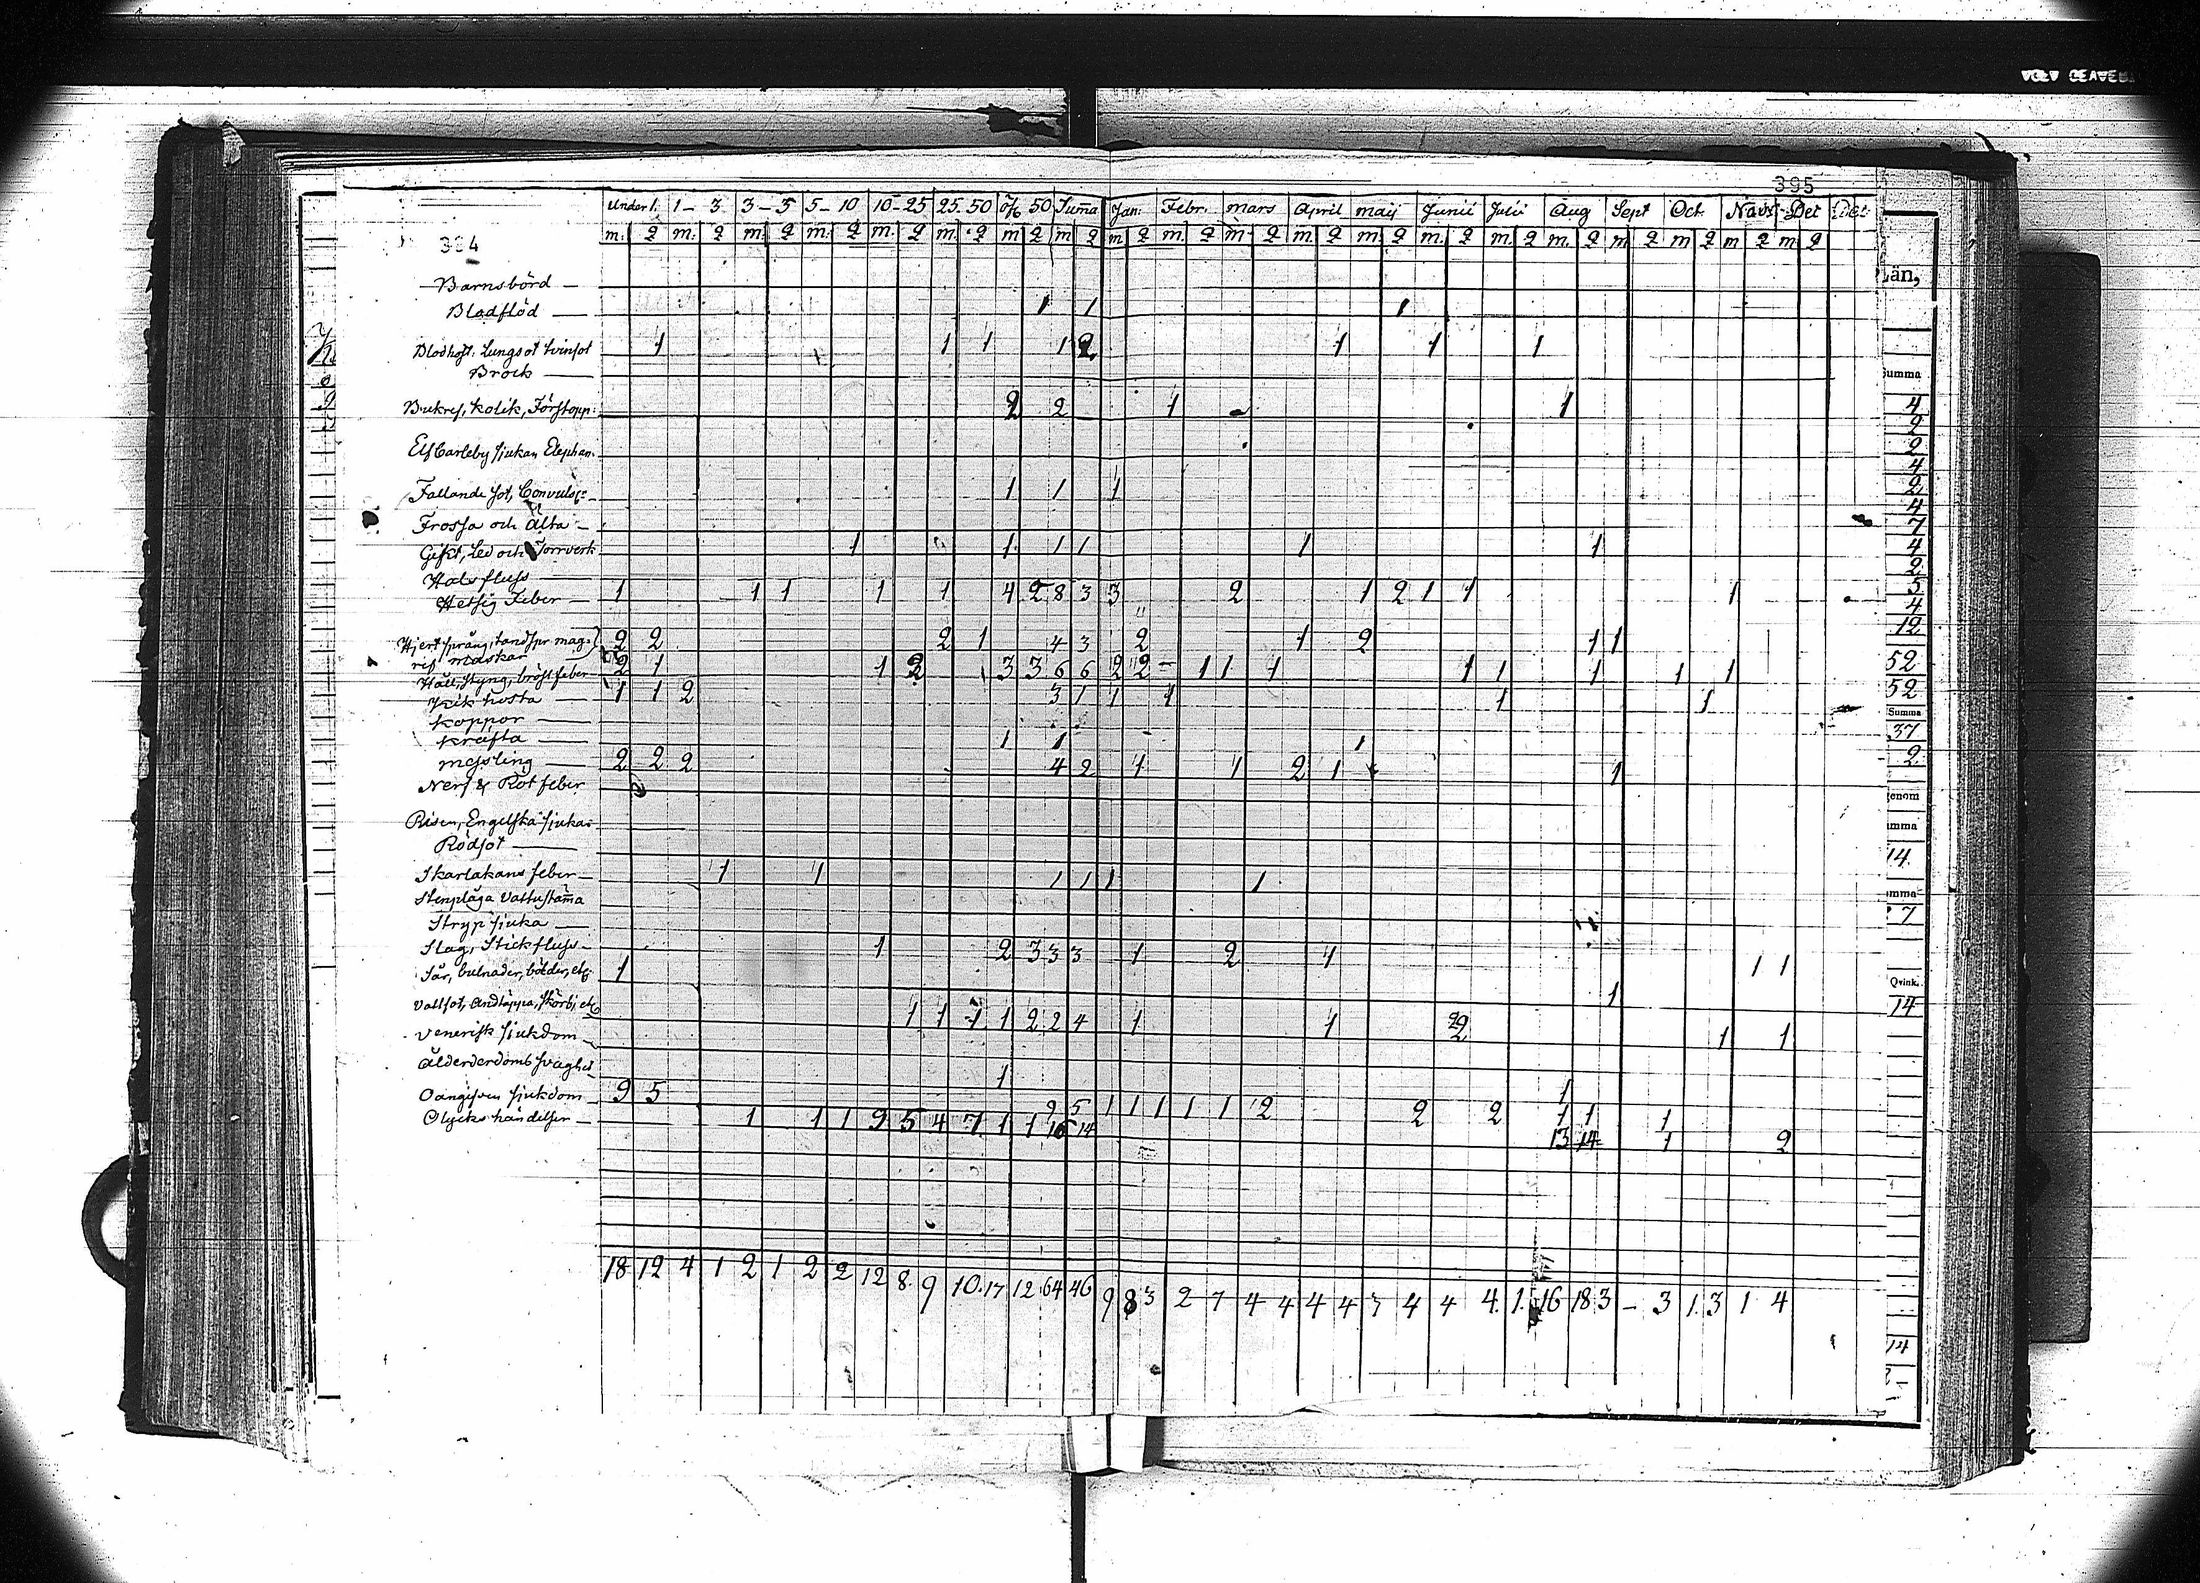 395
394
Under 1. 1 - 3 3 - 5 5 - 10 10 - 25 25. 50 öfv 50 Suma Jan: Febr. Mars April maij Junii Julii Aug Sept Oct. Nov. Det Det
m. q m. q m. q m. q m. q m. q m q m q m q m. q m. q m. q m. q m. q m. q m. q m q m q m q m q
Barnsbörd —
Blodflöd — 1 1 1
Blodhost. Lungsot tvinsot 1 1 1 1 2 1 1 1
Brock —
Bukref, kolik, Förstopp: 2 2 1 1
Elfcarleby sjukan Elephan.
Fallande sot, Convuls: 1 1 1
Frossa och Älta —
Gikt, Led och Torrverk 1 1 1 1 1 1
Halsfluss —
Hetsig Feber — 1 1 1 1 1 4 2 8 3 3 2 1 2 1 1 1
Hjertsprång, tandspr mag: 2 2 2 1 4 3 2 1 2 1 1
ref maskar
Håll, styng, bröstfeber 2 1 1 2 3 3 6 6 2 2 1 1 1 1 1 1 1 1
Kikhosta — 1 1 2 3 1 1 1 1 1
Koppor —
Kräfta — 1 1 1
messling — 2 2 2 4 2 1 1 2 1 1
Nerf & Röt feber
Risen, Engelska sjukan
Rödsot —
Skarlakans feber — 1 1 1 1 1 1
Stenplåga Vattustäma
Stryp sjuka —
Slag, Stickfluss — 1 2 3 3 3 1 2 1
Sår, bulnader, bölder, etc. 1 1 1
Vattsot, Andtäppa, skörbj etc 1
Venerisk sjukdom 1 1 1 1 2 2 4 1 1 2 1 1
Ålderdoms svaghet
1
Oangifven sjukdom — 9 5 1
9 5 1 1 1 1 1 2 2 2 1 1 1
Olyckshändelser — 1 1 1 9 5 4 7 1 1 16 14
13 14 1 2
18 12 4 1 2 1 2 2 12 8 9 10 17 12 64 46 9 8 3 2 7 4 4 4 4 3 4 4 4. 1. 16 18 3 – 3 1. 3 1 4
Län,
Summa
4
2
2
4
2
4
7
4
2
5
4
12
52
52
Summa
37
2
genom
mma
14.
mma
7
Qvink.
14
14